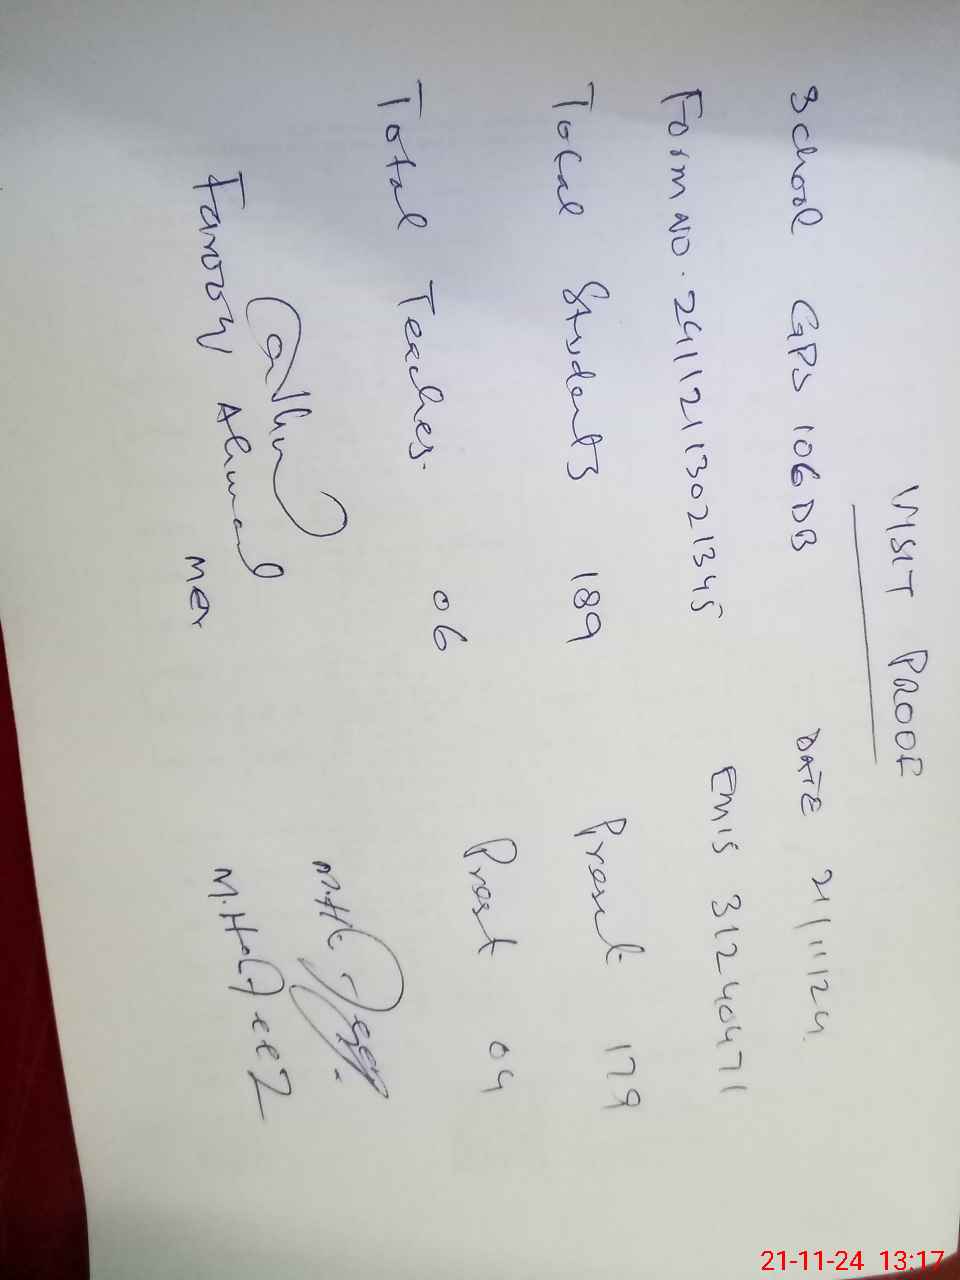 VISIT PROOF
School GPS 106DB DATE 21/11/24.
Form NO. 24112113021345 EMIS 31240471
Total Students 189 Present 179
Total Teaches. 06 Prest 04
Farooq Ahmad M.Hafeez
MEA
21-11-24 13:17